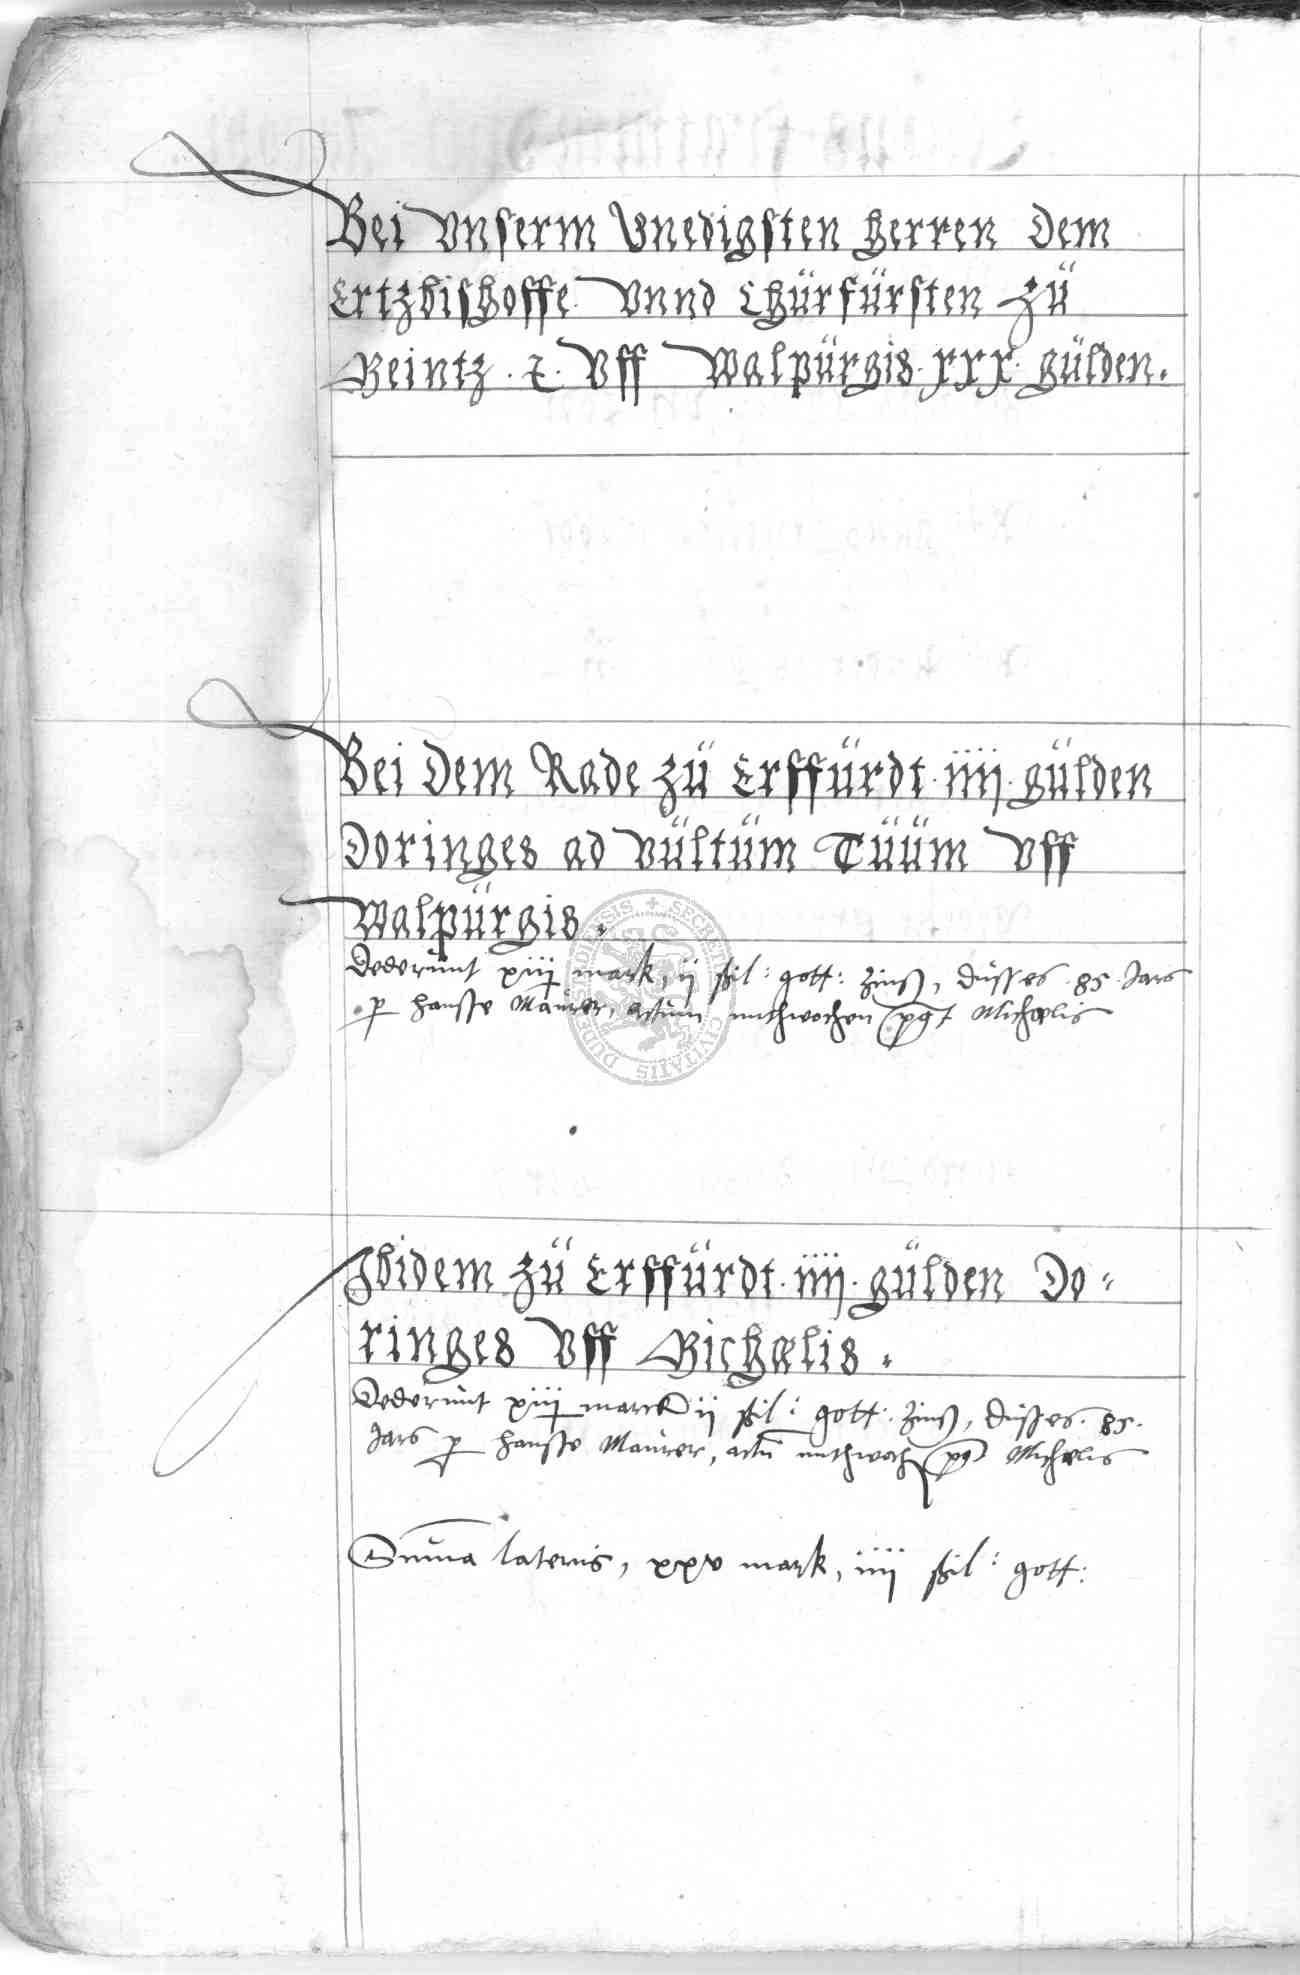 Bei Vnserm Gnedigsten Herren Dem
Ertzbischoffe Vnnd Chürfürsten zü
Meintz . Vff Walpürgis . xxx . gülden .
Bei Dem Rade zü Erffürdt . iiij . gülden
Doringes ad vültüm Tüüm Vff
Walpürgis .
Dederunt mark, ij ßil : gott : Zinß, düsses 85 Jars
p hansse Maürer, actum mithwochen Michaelis
Ibidem zü Erffürdt . iiij . gülden Do=
ringes Vff Michaelis .
Dederunt marck ij ßil : gott : Zinß, düsses . 85 .
Jars p hansse Maürer, actü mithwoch Michaelis
Suma lateris, xxv mark, iiij ßil : gott :
SECRETUM CIVITATIS